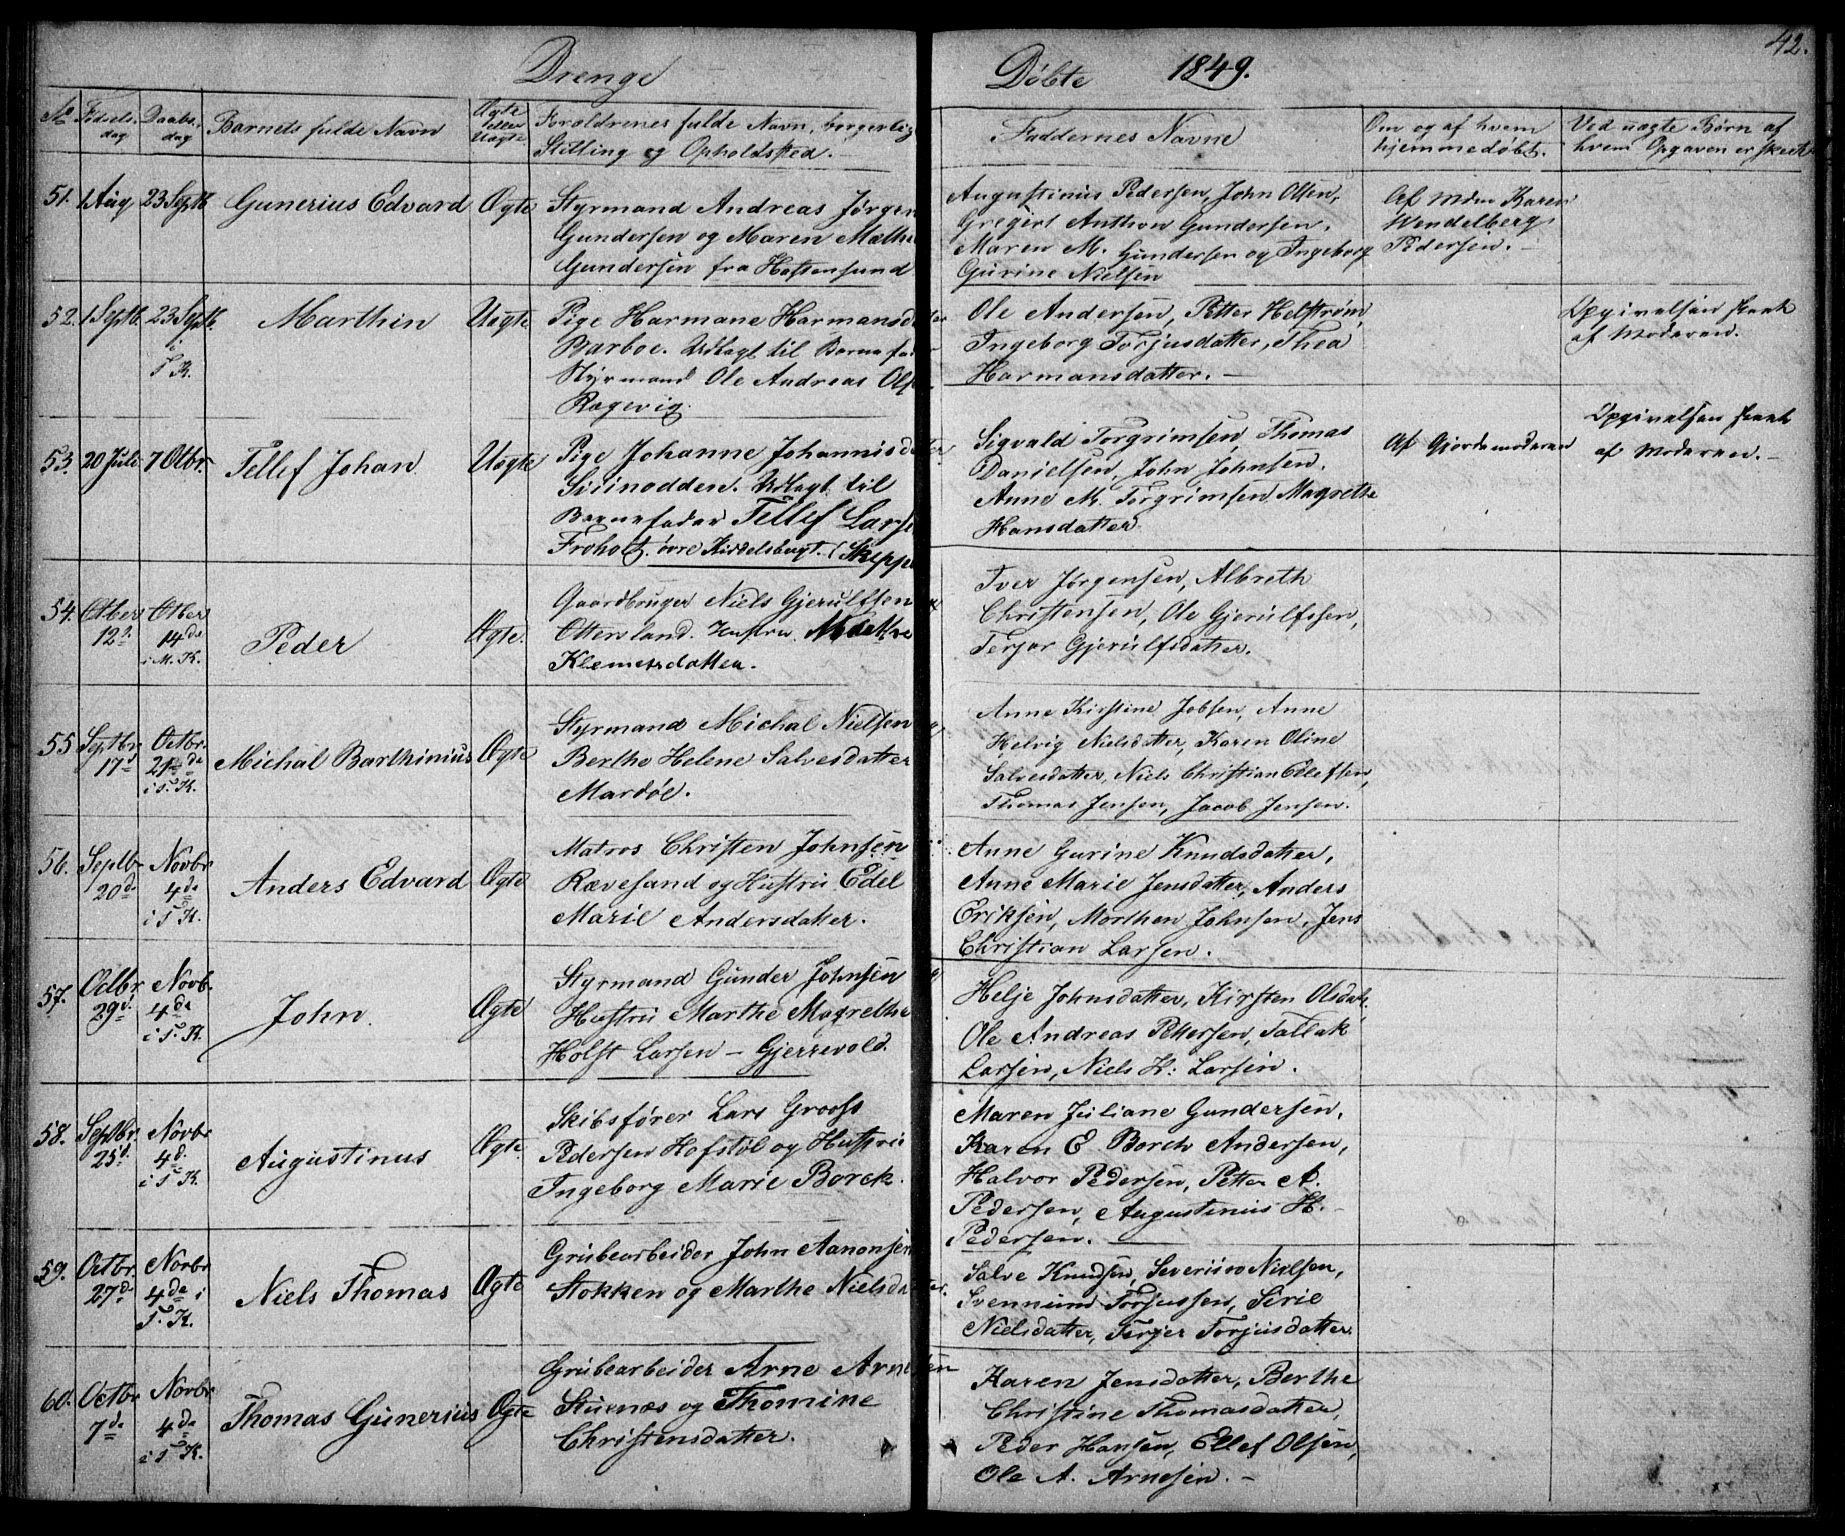 42.
Drenge Døbte 1849.
No Fødsels- dag Daabs- dag Barnets fulde Navn Ægte eller Uægte Forældrenes fulde Navn, borgerlig
Stilling og Opholdsted.
Faddernes Navne
Om og af hvem
hjemmedøbt.
Ved uægte Børn af
hvem Opgaven er skeet
51. 1 Aug 23 Septb Gunerius Edvard Ægte Styrmand Andreas Jørgen
Gundersen og Maren Mathe
Gundersen fra Hæssensund
Augustinus Pedersen, John Olsen,
Gregert Anthon Gundersen,
Maren M. Gundersen og Ingeborg
Gurine Nielsen
Af Mdm Karen
Wendelberg
Pedersen.
52. 1 Septb. 23 Septb. i T. K. Marthin Uægte Pige Harmane Harmansd
Barboe. Udlagt til Barnefad
Styrmand Ole Andreas Ols
Rægevig.
Ole Andersen, Petter Helstrøm,
Ingeborg Torjusdatter, Thea
Harmansdatter.
Opgivelsen skeet
af Moderen.
53. 20 Juli 7 Octbr. Tellef Johan Uægte Pige Johanne Johannisd
Sviinodden. Udlagt til
Barnefader Tellef Lars
Froholt. øvre Kiddelsbugt. (Skipper
Sigvald Torgrimsen, Thomas
Danielsen, John Johnsen.
Anne M. Torgrimsen Magrethe
Hansdatter.
Af Gjordemoderen
Opgivelsen skeet
af Moderen.
54. Otber 12te Otber 14de i M. K. Peder Ægte. Gaardbruger Niels Gjerulfsen
Ottersland. Hustru
Klemetsdatter.
Iver Jørgensen, Albreth
Christensen, Ole Gjerulfssen,
Terjer Gjerulfsdatter.
55 Septbr. 17d Octbr. 21de i T. K. Michal Barthinius Ægte Styrmand Michal Nielsen
Berthe Helene Salvesdatter
Mardøe.
Anne Kirstine Jobsen, Anne
Helvig Nielsdatter, Karen Oline
Salvesdatter, Niels Christian Ellefsen,
Thomas Jensen, Jacob Jensen.
56. Septbr 20d Novbr 4de i T. K. Anders Edvard Ægte Matros Christen Johnsen
Rævesand og Hustru Edel
Marie Andersdatter.
Anne Gurine Knudsdatter,
Anne Marie Jensdatter, Anders
Eriksen, Morthen Johnsen, Jens
Christian Larsen.
57. Octbr 29d Novb. 4de i T. K. John Ægte Styrmand Gunder Johnsen
Hustru Marthe Magrethe
Holst Larsen – Gjerrevold.
Helje Johnsdatter, Kirsten Olsdat.
Ole Andreas Pettersen, Tallak
Larsen, Niels H: Larsen.
58. Septbr. 25d. Novbr 4d. i T. K. Augustinus Ægte Skibsfører Lars Grooss
Pedersen Hofstøl og Hustru
Ingeborg Marie Borck.
Maren Juliane Gundersen,
Karen E Borck Andersen,
Halvor Pedersen, Petter A.
Pedersen, Augustinius H.
Pedersen.
59. Octbr. 27d Novbr 4de i T. K. Niels Thomas Ægte Grubearbeider John Aanonsen
Stokken og Marthe Nielsdatter.
Salve Knudsen, Severin Nielsen,
Svennum Torjussen, Sirie
Nielsdatter, Terjer Torjusdatter.
60. Octbr 7de Novbr 4de i T. K. Thomas Gunerius Ægte Grubearbeider Arne Arnesen
Stuenæs og Thomine
Christensdatter.
Karen Jensdatter, Berthe
Christine Thomasdatter,
Peder Hansen, Ellef Olsen,
Ole A. Arnesen.